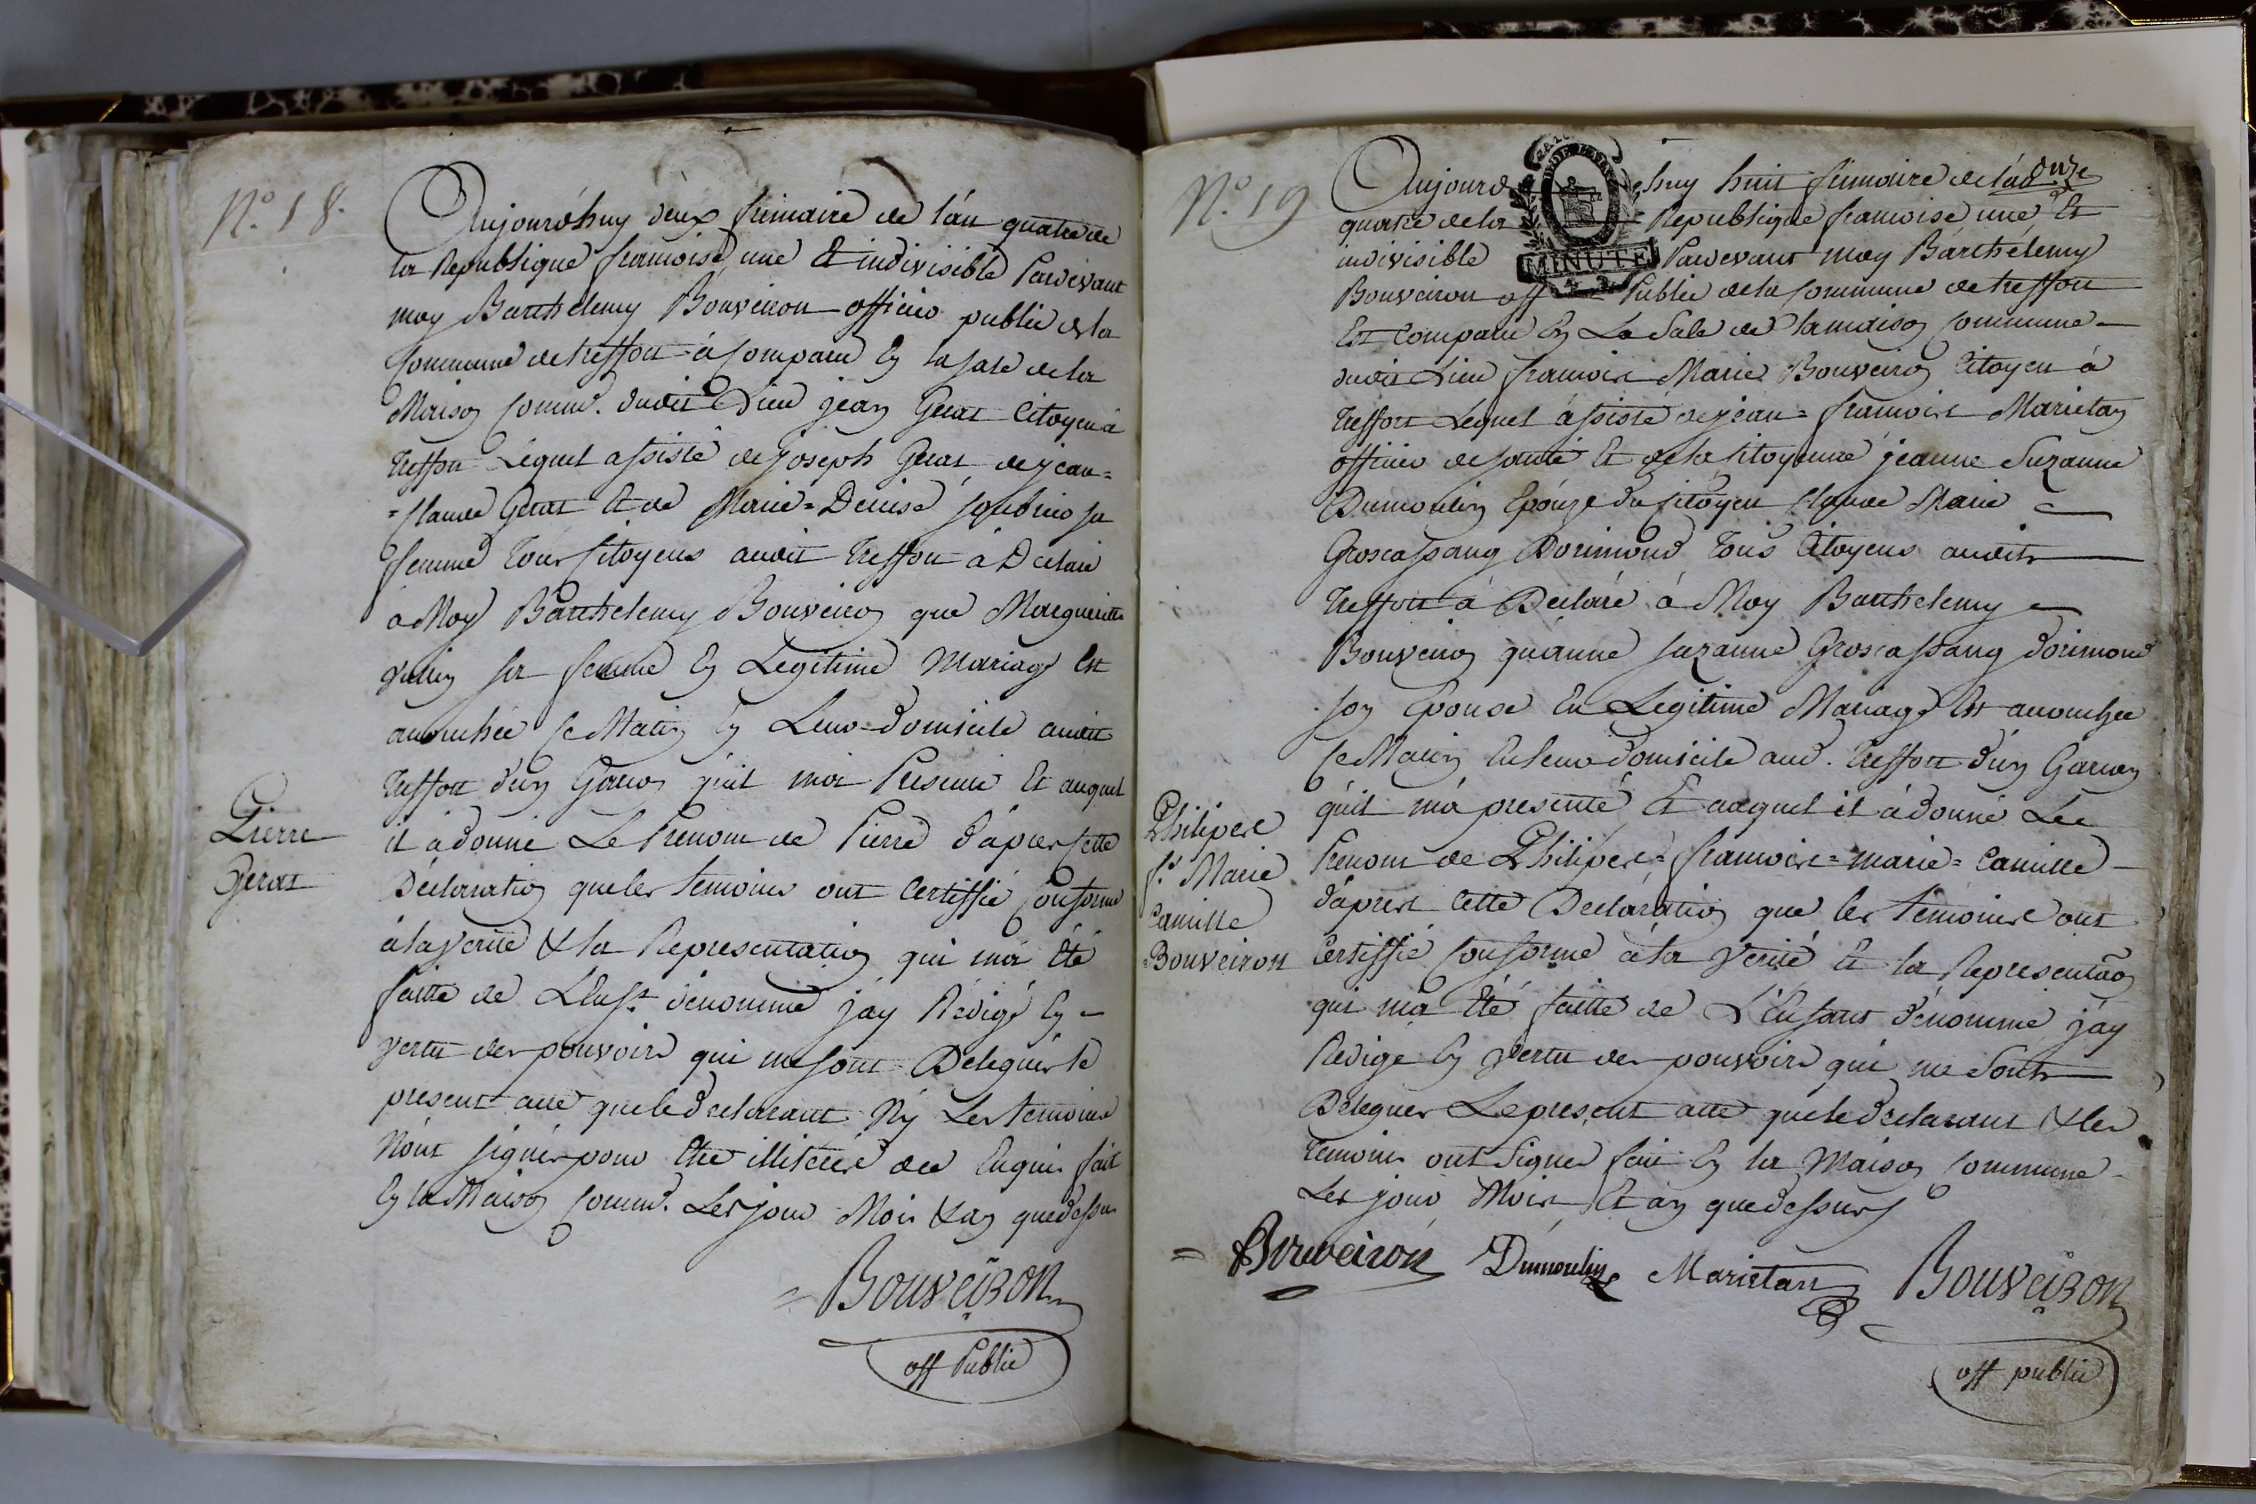 N.º 18.
Aujourd'huy deux frimaire de l'an quatre de
la Republique francoise une et indivisible Pardevant
moy Barthelemy Bouveiron officier public de la
Commune de treffort a comparu En la sale de la
Maison Commu. dudit Lieu jean Gerat Citoyen à
treffort Lequel assisté de joseph Gerat de jean=
=Claude Gerat et de Marie=Denise sa
femme tous Citoyens audit treffort à Déclaré
à Moy Barthelemy Bouveiron que Margueritte
sa femme En Legitime Mariage Est
accouchée Ce Matin En Leur Domicile audit
treffort d'un Garcon qu'il m'a Presenté Et auquel
Pierre
Gerat
il à donné Le Prenom de Pierre d'après Cette
Déclaration que les temoins ont Certiffié Conforme
à la verité & la Representation qui m'a Eté
faitte de L'Enft dénommé j'ay Rédigé En
vertu des pouvoirs qui me sont Delegués le
present acte que le declarant Ny Les temoins
N'ont signés pour Etre illiteré de ce Enquis fait
En la Maison Commu. Les jour Mois & an que dessus
Bouveiron
off Public
N.º 19
MINUTE
Aujourd'huy huit frimaire de l'an
quatre de la Republique francoise une Et
indivisible Pardevant moy Barthélemy
Bouveiron off Public de la Commune de treffort
Est Comparu En La Sale de la maison Commune
dudit Lieu francois Marie Bouveiron Citoyen à
treffort Lequel assisté de jean=francois Marietan
officier de santé Et de la Citoyenne jeanne Suzanne
Dumoulin Epouze du Citoyen Claude Marie
Groscassang Dorimond tous Citoyens audit
treffort à Declaré à Moy Barthelemy
Bouveiron qu'anne suzanne Groscassang dorimond
son Epouse En Legitime Mariage Est accouchée
Ce Matin En leur domicile aud. treffort d'un Garcon
qu'il m'a presenté Et auquel il à donné Les
Philipe
f.s Marie
Camille
Bouveiron
Prenom de Philipe=francois=marie=Camille
d'après Cette Declaration que les temoins ont
Certiffié Conforme à la Verité Et la Representaõn
qui m'a Eté faitte de L'Enfant dénommé j'ay
Redigé En Vertu des pouvoirs qui me Sont
Delegues Le present acte que le declarant & les
temoins ont Signes fait En la Maison Commune
Les jour Mois Et an que dessus
Bouveiron Dumoulin Marietan Bouveiron
off public